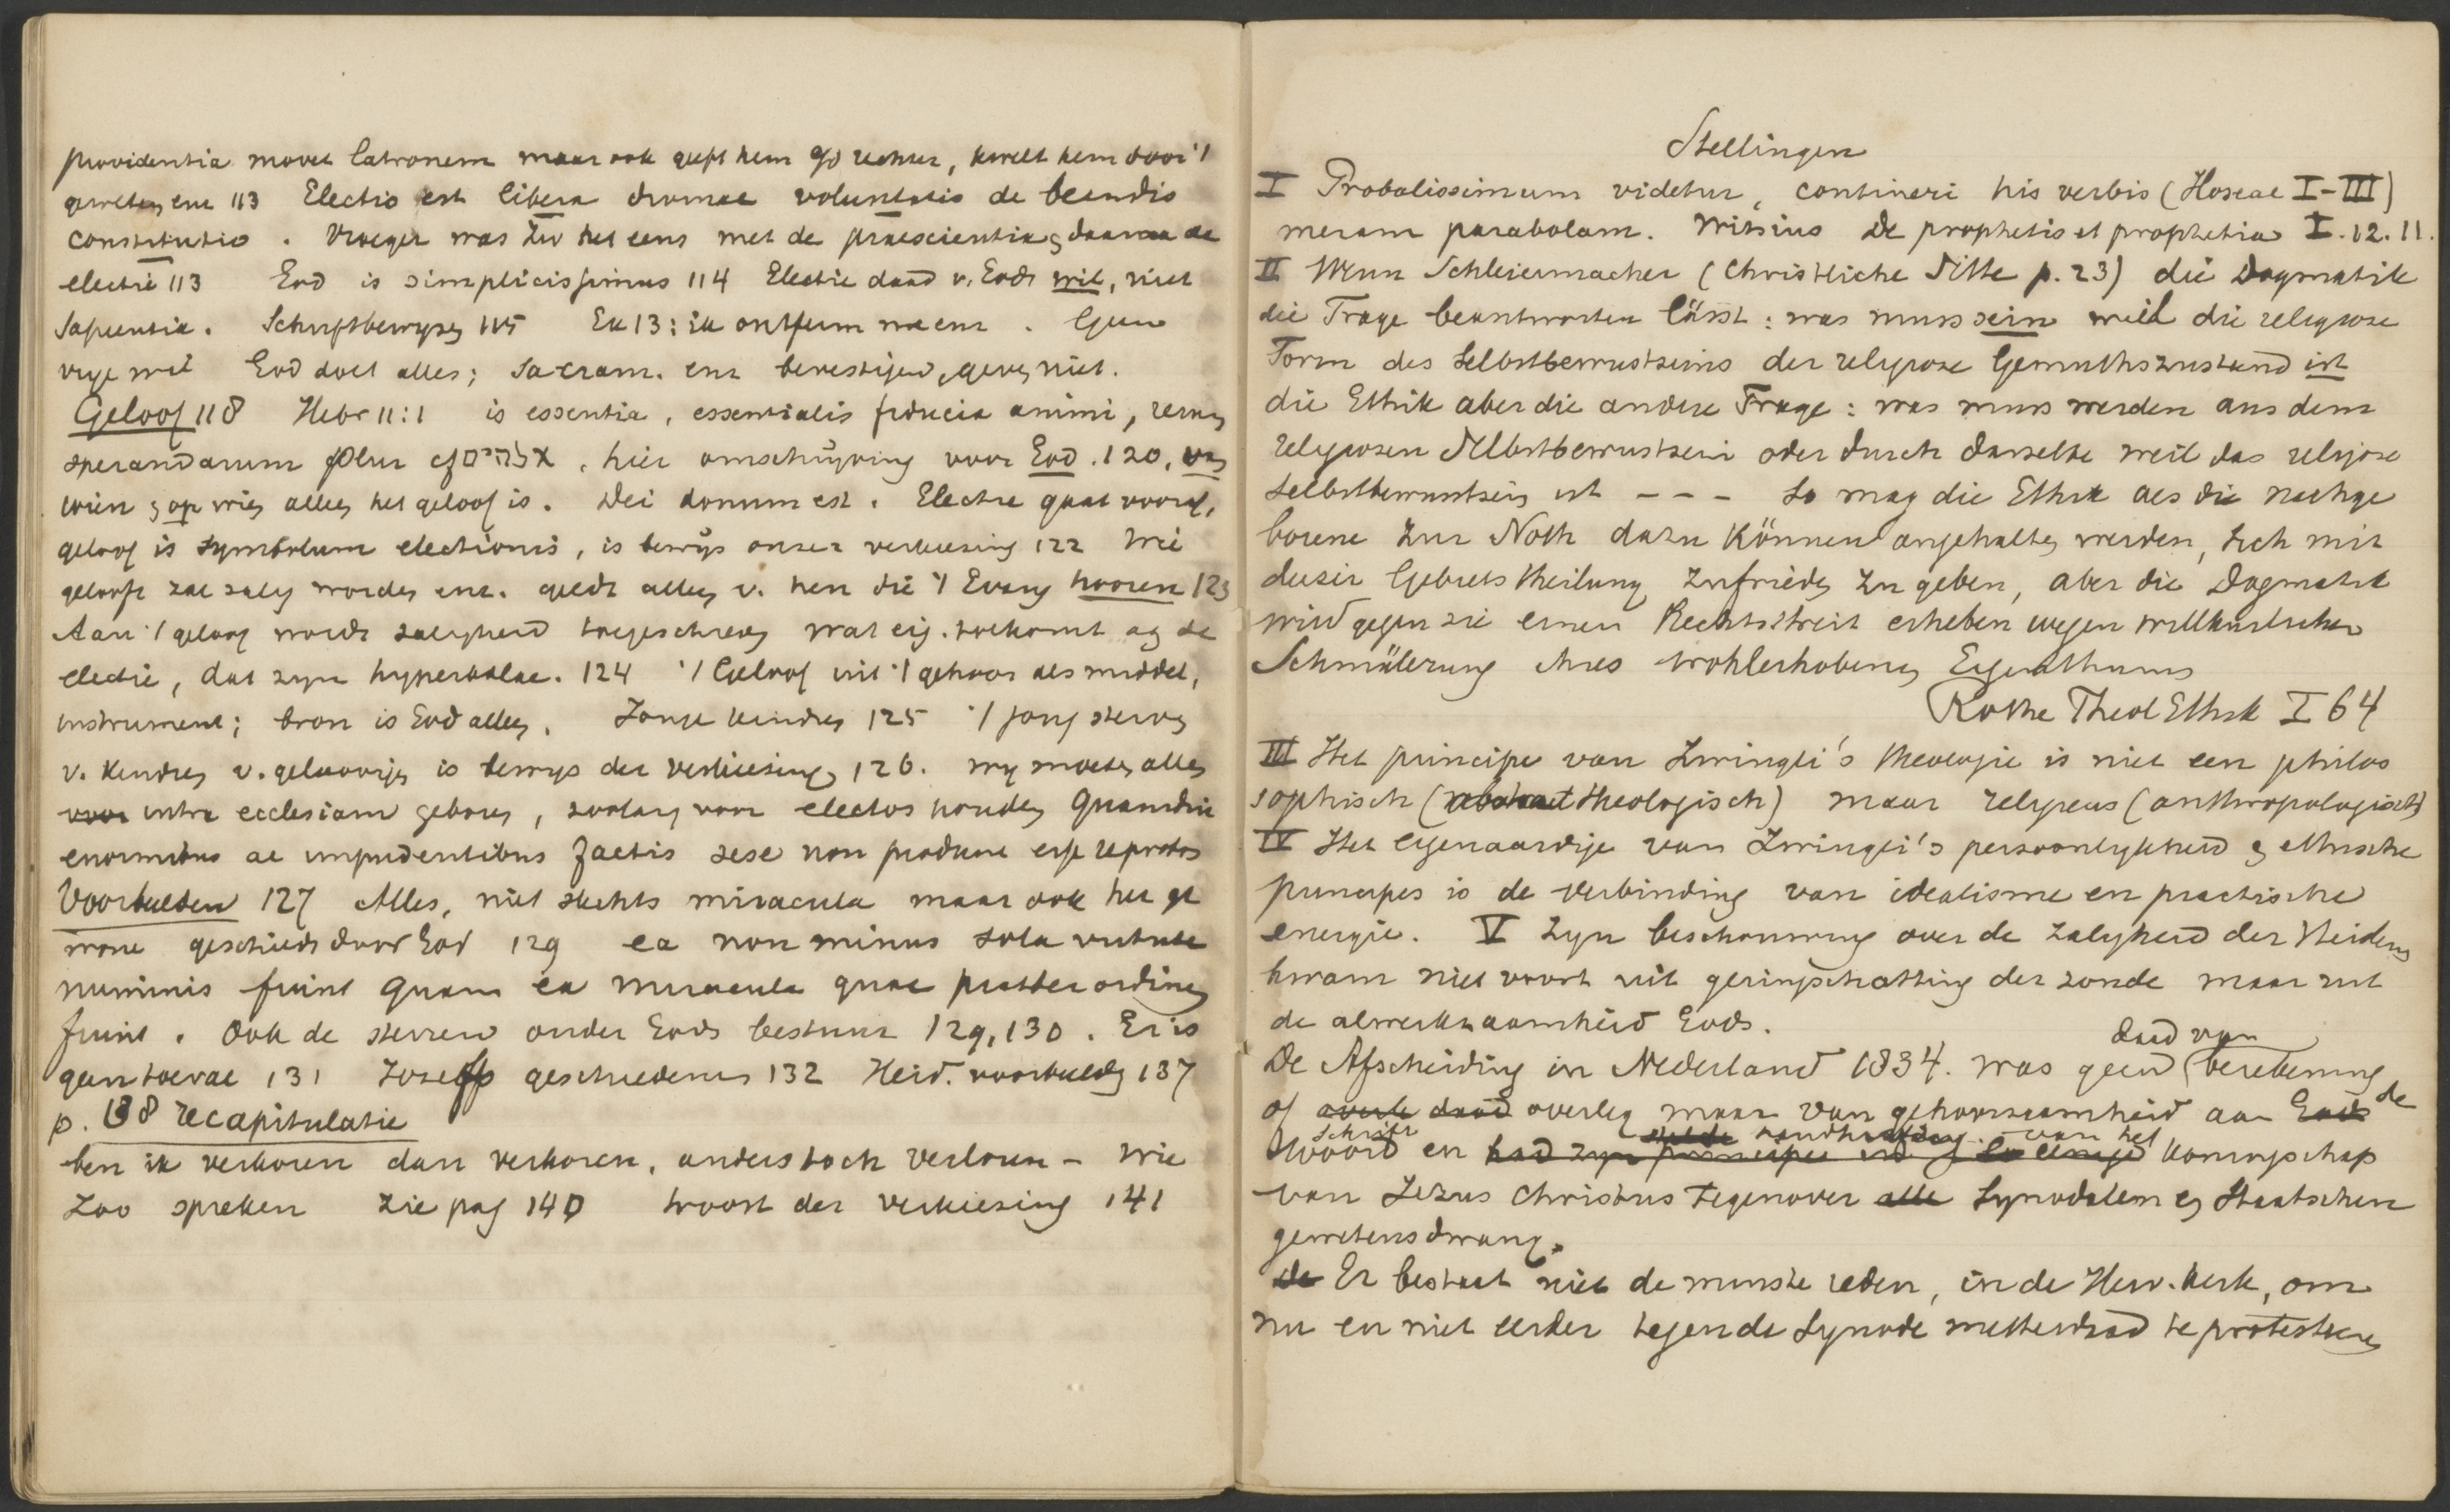 providentia movet latronem maar ook geeft hem God rechter, kwelt hem door 't
geweten enz 113 Electio est libera divinae voluntatis de beandis
constitutio. Vroeger was Zw het eens met de praescientia, daarna de
electie 113 God is simplicissimus 114 Electie daad v. Gods wil, niet
sapientia. Schriftbewijzen 115 Ex 13: ik ontferm me enz. Geen
vrije wil God doet alles; Sacram. enz bevestigen, geven niet.
Geloof 118 Hebr 11:1 is essentia, essentialis fiducia animi, rerum
sperandarum plur cf אלהים, hier omschrijving voor God. 120, van
wien en op wien alleen het geloof is. Dei donum est. Electie gaat vooraf,
geloof is symbolum electionis, is bewijs onzer verkiezing 122 Wie
gelooft zal zalig worden enz. geldt alleen v. hen die 't Evang hooren 123
Aan 't geloof wordt zaligheid toegeschreven wat eig. toekomt aan de
electie, dat zijn hyperbolae. 124 't Geloof uit 't gehoor als middel,
instrument; bron is God alleen. Jonge kinderen 125 't jong sterven
v. kinderen v. geloovigen is bewijs der verkiezing, 126. wij moeten allen
voor intra ecclesiam geboren, zoolang voor electos houden Quamdiu
enormibus ac impudentibus factis sese non produnt esse reprobos
Voorbeelden 127 Alles, niet slechts miracula maar ook het ge
wone geschiedt door God 129 ea non minus sola virtute
numinis fiunt quam ea miracula quae praeter ordinem
fiunt. Ook de sterren onder Gods bestuur 129, 130. Er is
geen toeval 131 Josefs geschiedenis 132 Heid. voorbeelden 137
p. 138 recapitulatie
ben ik verkoren dan verkoren, anders toch verloren – Wie
Zoo spreken zie pag 140 troost der verkiezing 141
Stellingen
I Probalissimum videtur, contineri his verbis (Hoseae I–III)
meram parabolam. Witsius De prophetis et prophetia I. 12. 11.
II Wenn Schleiermacher (Christliche Sitte p. 23) die Dogmatik
die Frage beantworten lässt: was muss sein weil die religiose
Form des Selbstbewustseins der religiose Gemuthszustand ist
die Ethik aber die andere Frage: was muss werden aus dem
religiosen Selbstbewustsein oder durch dasselbe weil das religiose
Selbstbewustsein ist – – – So mag die Ethik als die nachge
borene zur Noth dazu können angehalten werden, sich mit
dieser Gebietstheilung zufrieden zu geben, aber die Dogmatik
wird gegen sie einen Rechtsstreit erheben wegen willkürlicher
Schmälerung ihres wohlerhobenen Eigenthums
Rothe Theol Ethik I 64
III Het principe van Zwingli's theologie is niet een philos
sophisch (abstract theologisch) maar religieus (anthropologisch)
IV Het eigenaardige van Zwingli's persoonlijkheid en ethische
principes is de verbinding van idealisme en practische
energie. V Zijn beschouwing over de zaligheid der Heidenen
kwam niet voort uit geringschatting der zonde maar uit
de alwerkzaamheid Gods.
daad van
De Afscheiding in Nederland 1834. was geen berekening
of overle daad overleg maar van gehoorzaamheid aan Gods de
Schrift stelde handhaving van het
Woord en had zijn principes in de eenige koningschap
van Jezus Christus tegenover alle Synodalen en Staatschen
gewetensdwang.
de Er bestaat niet de minste reden, in de Herv. kerk, om
nu en niet eerder tegen de Synode metterdaad te protesteren